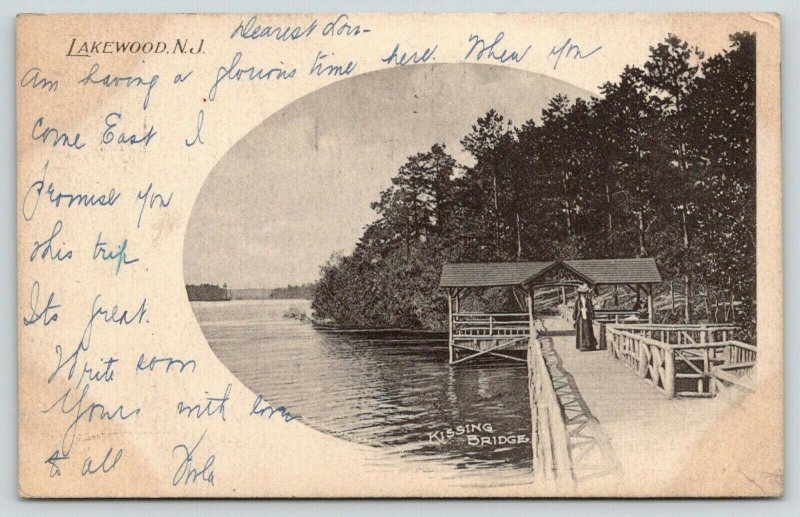 LAKEWOOD, N.J.
Dearest
Am having a glorious time here. When you
come East I
promise you
this trip.
Its great.
Write soon
Yours with love
& all
KISSING
BRIDGE